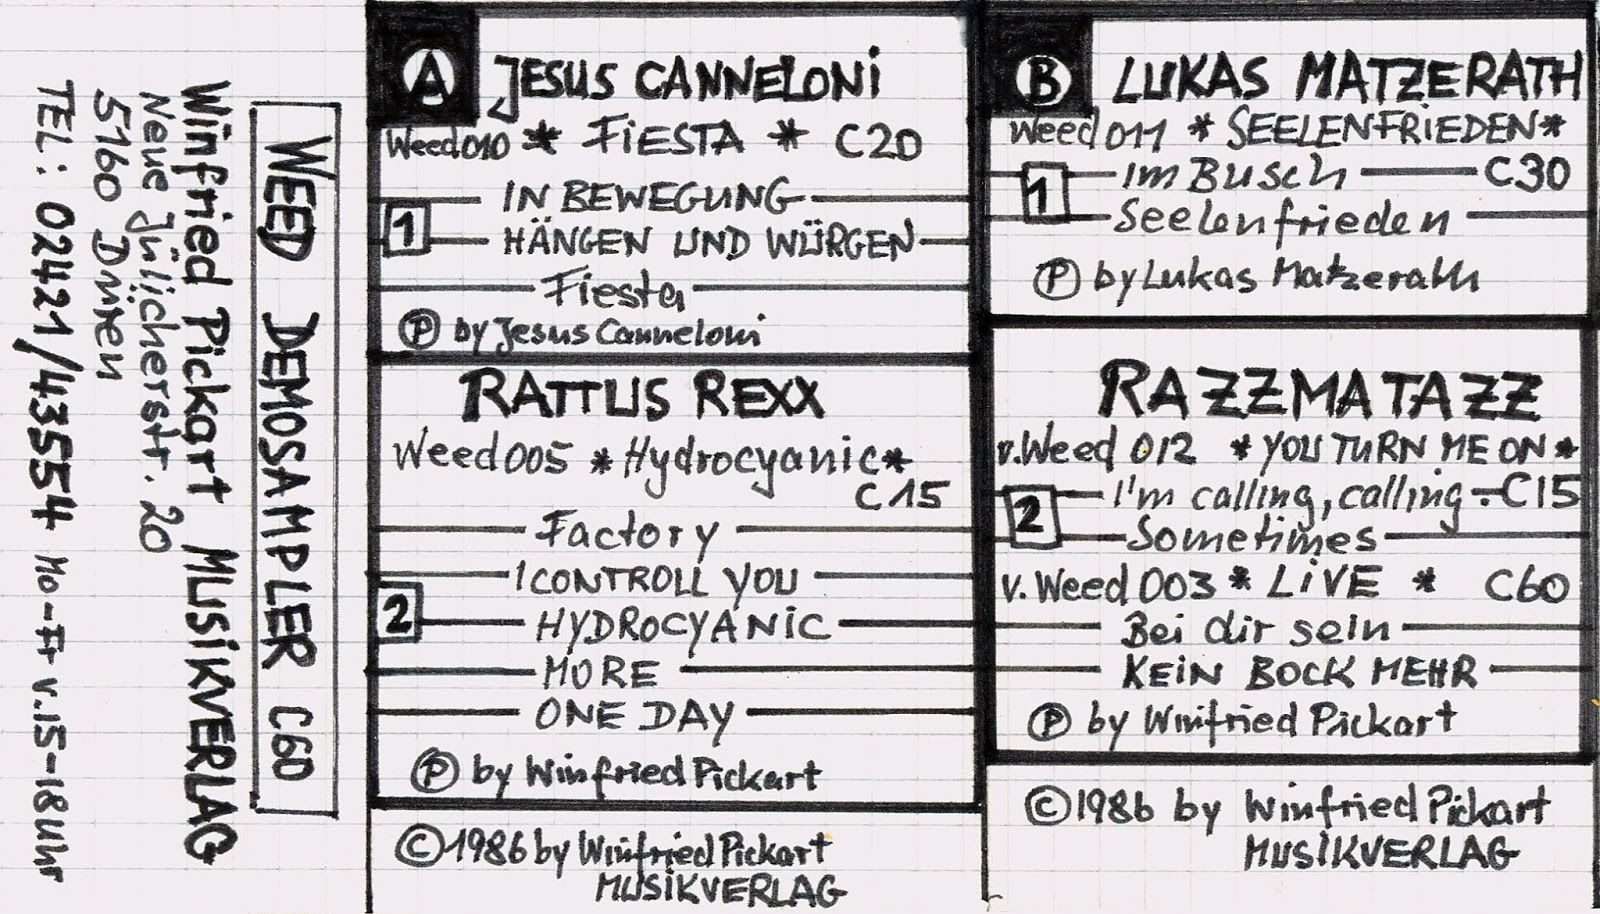 WEED DEMOSAMPLER C60
Winfried Pickart MUSIKVERLAG
Neue Jülicherstr. 20
5160 Düren
TEL: 02421/43554 Mo-Fr v.15-18Uhr
A JESUS CANNELONI
Weed010 * FiESTA * C20
1
IN BEWEGUNG
HÄNGEN UND WÜRGEN
Fiesta
Ⓟ by Jesus Canneloni
RATTUS REXX
Weed 005 * Hydrocyanic *
C15
2
Factory
I CONTROLL YOU
HYDROCYANIC
MORE
ONE DAY
Ⓟ by Winfried Pickart
© 1986 by Winfried Pickart
MUSIKVERLAG
B LUKAS MATZERATH
Weed 011 * SEELENFRIEDEN *
1
Im Busch C30
Seelenfrieden
Ⓟ by Lukas Matzerath
RAZZMATAZZ
v.Weed 012 * YOU TURN ME ON *
2
I'm calling, calling - C15
Sometimes
v. Weed 003 * LiVE * C60
Bei dir sein
KEiN BOCK MEHR
Ⓟ by Winfried Pickart
© 1986 by Winfried Pickart
MUSIKVERLAG